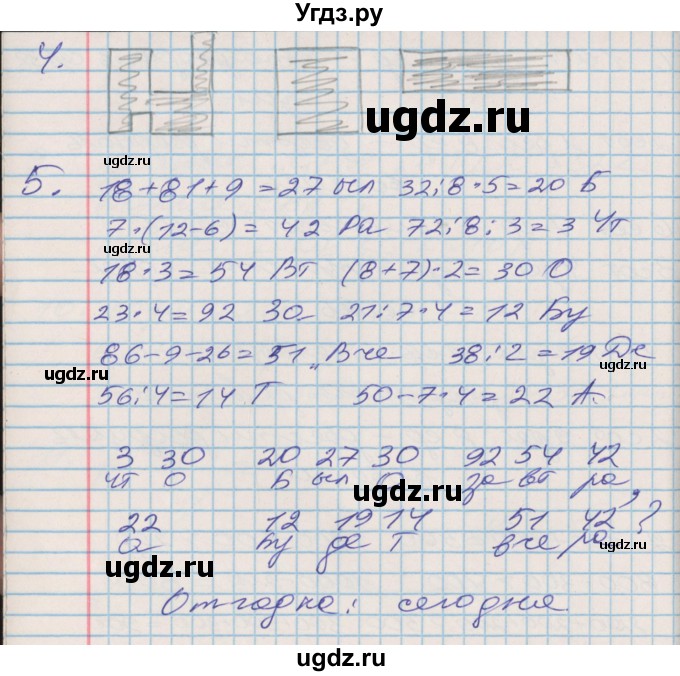 Угдз.ру
4.
ugdz.ru
ugdz.ru
5. 18+81+9=27 ыл 32:8·5=20 Б
7·(12-6)=42 Ра 72:8:3=3 Чт
ugdz.ru
18·3=54 Вт (8+7)·2=30 О
23·4=92 За 21:7·4=12 Бу
ugdz.ru
86-9-26=51 Вче 38:2=19 Де
ugdz.ru
ugdz.ru
56:4=14 Т 50-7·4=22 А.
3 30 20 27 30 92 54 42
чт о б ыл о за вт ра,
ugdz.ru
ugdz.ru
22 12 19 14 51 42?
а бу де т вче ра
ugdz.ru
ugdz.ru
Отгадка: сегодня
ugdz.ru